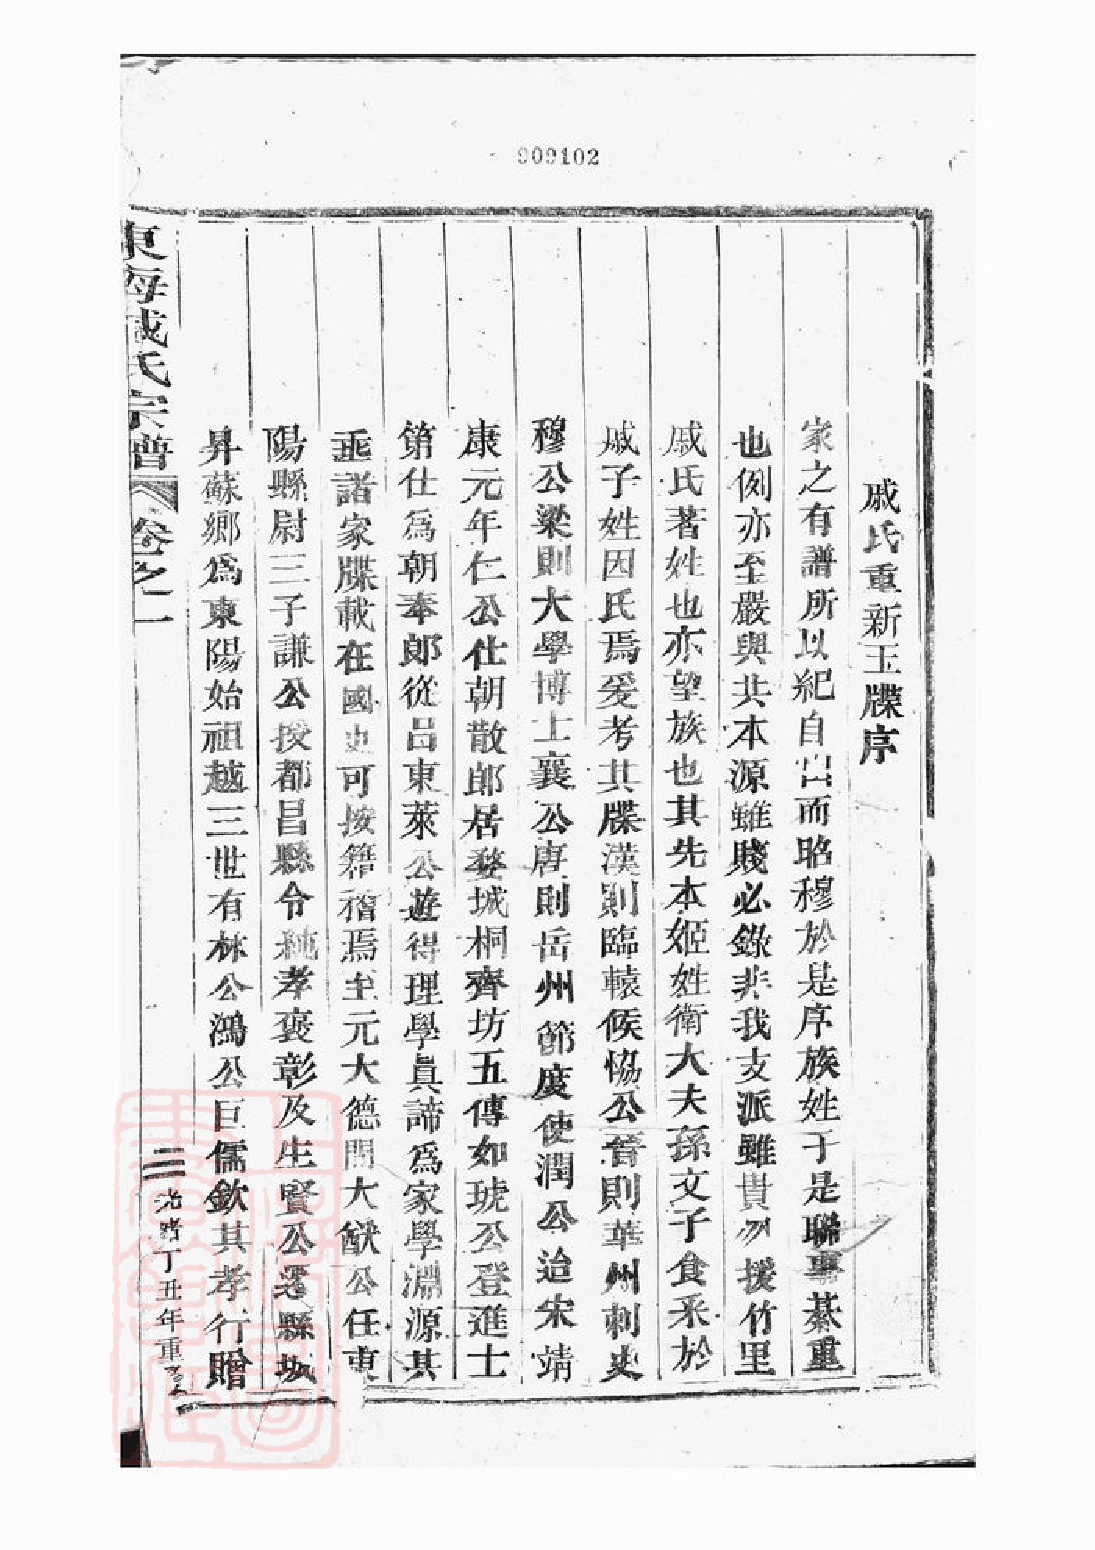 909102
戚氏重新玉牒序
家之有譜所以紀自出而昭穆於是序族姓于是聯事綦重
也例亦至嚴與共本源雖賤必錄非我支派雖貴勿援竹里
戚氏著姓也亦望族也其先本姬姓衛大夫孫文子食釆於
戚子姓因氏焉爰考其牒漢則臨轅侯恊公晉則華州刺史
穆公梁則大學博士襄公唐則岳州節度使潤公迨宋靖
康元年仁公仕朝散郎居婺城桐齊坊五傳如琥公登進士
第仕爲朝奉郎從呂東萊公遊得理學眞諦爲家學淵源其
垂諸家牒載在國史可按籍稽焉至元大德間大猷公任東
陽縣尉三子謙公授都昌縣令純孝褒彰及生賢公遷縣城
昇蘇鄉爲東陽始祖越三世有林公鴻公巨儒欽其孝行贈
東海戚氏宗譜 卷之一
三 光緒丁丑年重